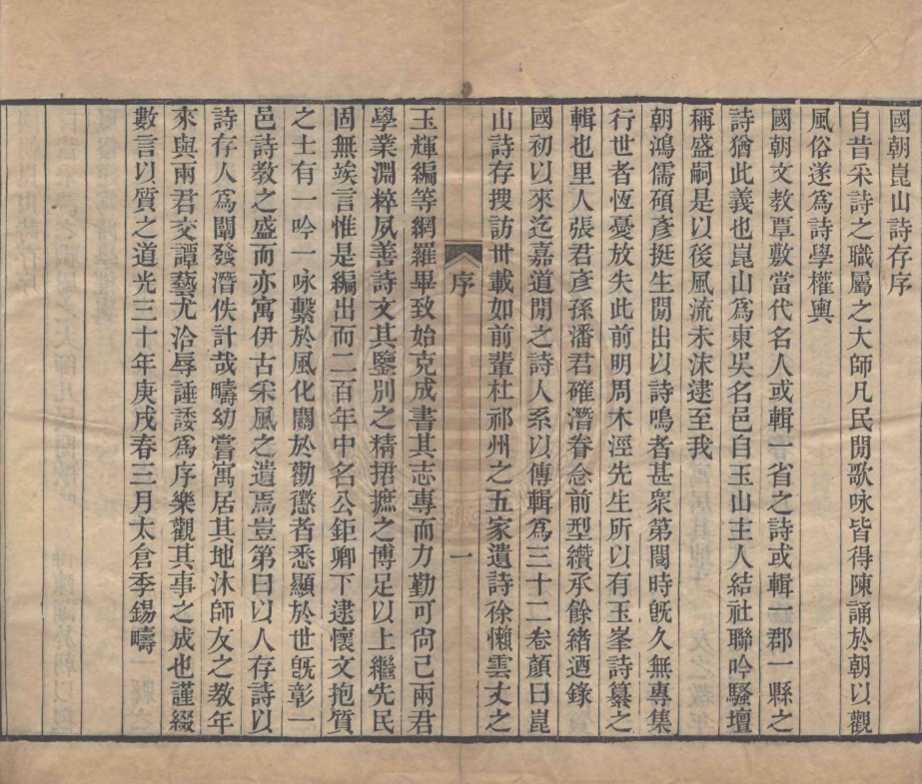 國朝崑山詩存序
自昔采詩之職屬之大師凡民閒歌咏皆得陳誦於朝以觀
風俗遂為詩學權輿
國朝文教覃敷當代名人或輯一省之詩或輯一郡一縣之
詩猶此義也崑山為東吳名邑自玉山主人結社聯吟騷壇
稱盛嗣是以後風流未沬逮至我
朝鴻儒碩彥挺生閒出以詩鳴者甚衆第閱時旣久無專集
行世者恆憂放失此前明周木涇先生所以有玉峯詩纂之
輯也里人張君彥孫潘君確潛眷念前型纘承餘緒迺錄
國初以來迄嘉道閒之詩人系以傳輯為三十二卷顏曰崑
山詩存搜訪卅載如前輩杜祁州之五家遺詩徐懶雲丈之
序
一
玉輝編等網羅畢致始克成書其志專而力勤可尙已兩君
學業淵粹夙善詩文其鑒別之精捃摭之博足以上繼先民
固無竢言惟是編出而二百年中名公鉅卿下逮懷文抱質
之士有一吟一咏繫於風化關於勸懲者悉顯於世旣彰一
邑詩教之盛而亦寓伊古采風之遺焉豈第曰以人存詩以
詩存人為闡發潛佚計哉疇幼嘗寓居其地沐師友之教年
來與兩君交譚藝尤洽辱諈諉為序樂觀其事之成也謹綴
數言以質之道光三十年庚戌春三月太倉季錫疇